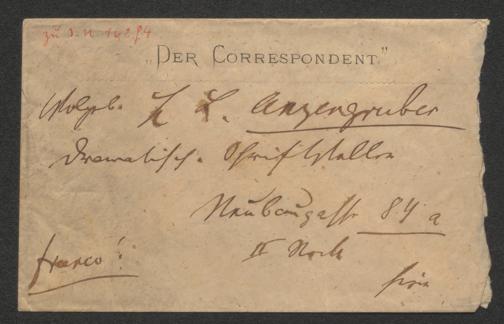 zu J. N.
„DER CORRESPONDENT"
L. Anzengruber
dramatisch. Schriftsteller
Neubaugasse 84 a
II Stock
franco!